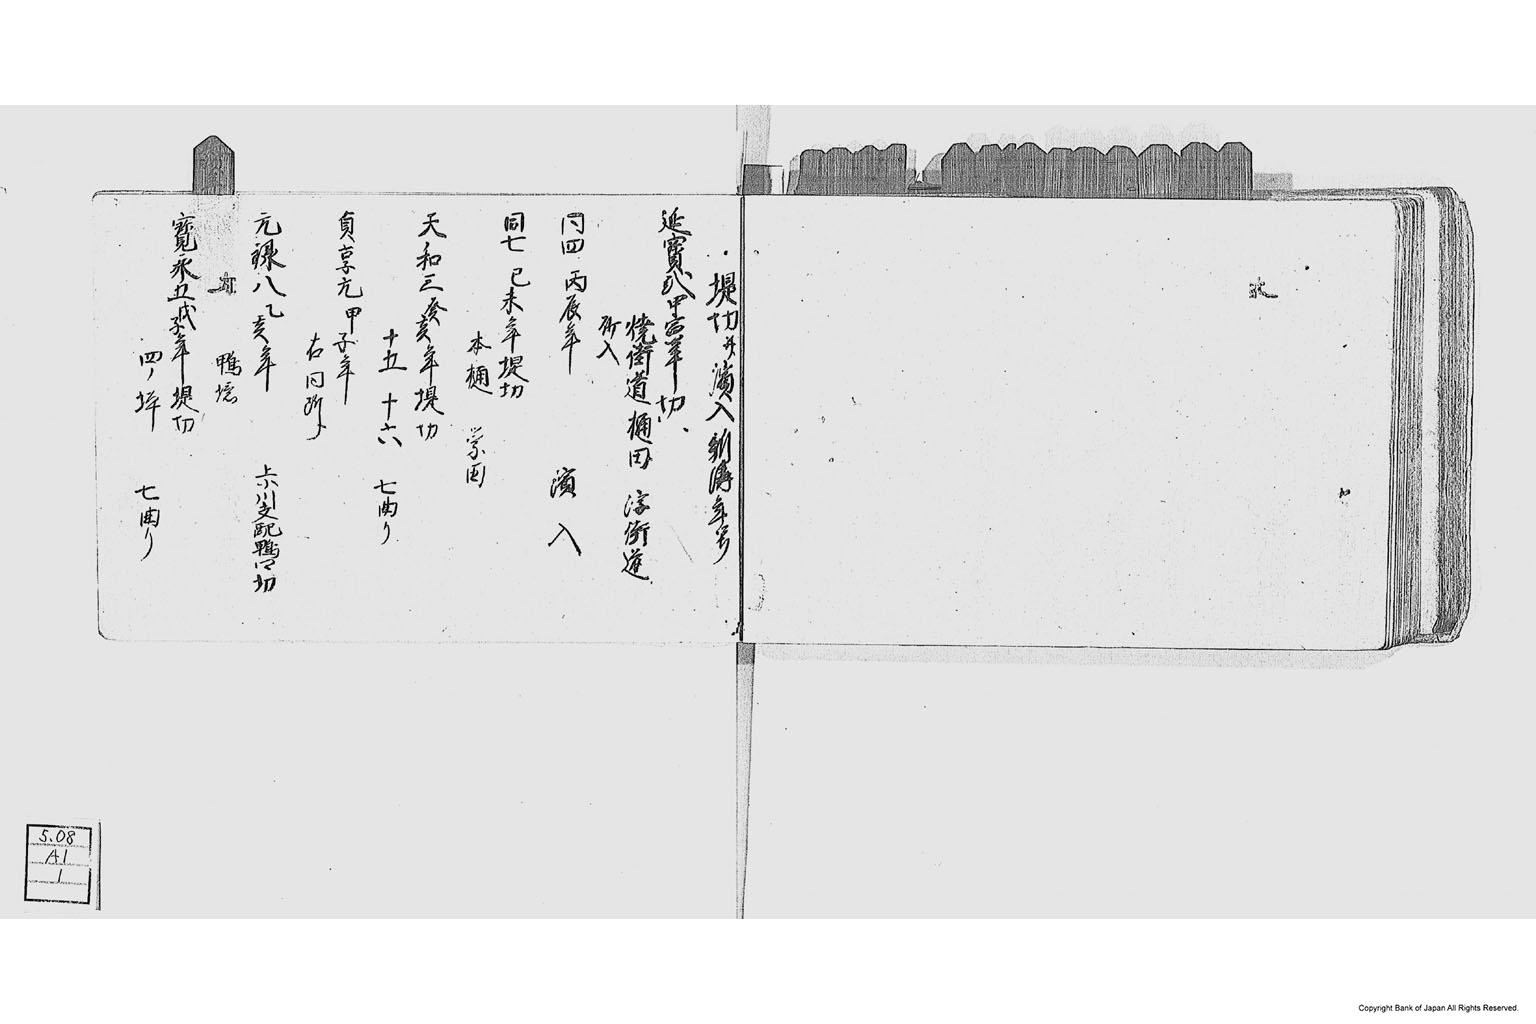 ・堤切并濱入新溝年号
延寳弐甲寅年切、
焼街道樋田 淳街道
所入
同四丙辰年 濱入
同七己未年堤切
本樋 学田
天和三癸亥年堤切
十五 十六 七曲り
貞享元甲子年
右同所
元禄八乙亥年
鴨境
寳永五戊子年堤切
四ノ坪 七曲り
5.08
A1
1
Copyright Bank of Japan All Rights Reserved.